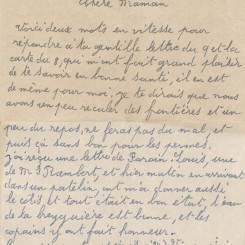 Chère Maman
Voici deux mots en vitesse pour
répendre à ta gentille lettre du 9 et la
carte du 8, qui m'ont fait grand plaisir
de te savoir en bonne santé, il en est
de même pour moi, je te dirais que nous
avons un peu reculer des frontières et un
peu du repos, ne feras pas du mal, et
puis ça sans bon pour les permes.
J'ai reçu une lettre de Parain Louis, une
de Mr Rambert, et hier matin en arrivant
dans un patelin, ont m'a donner aussi
le colis, et tout était en bon état, l'eau
de la bruyère est bonne, et les
copains y ont fait honneur.